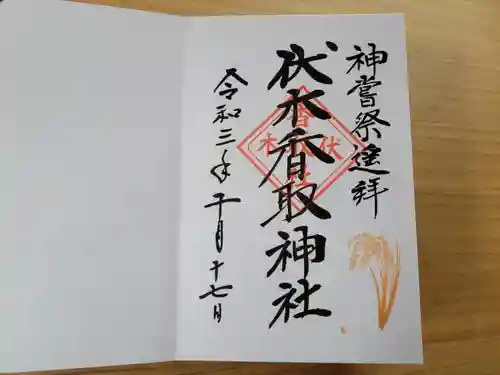 神嘗祭遙拜
伏木香取神社
令和三年十月十七日